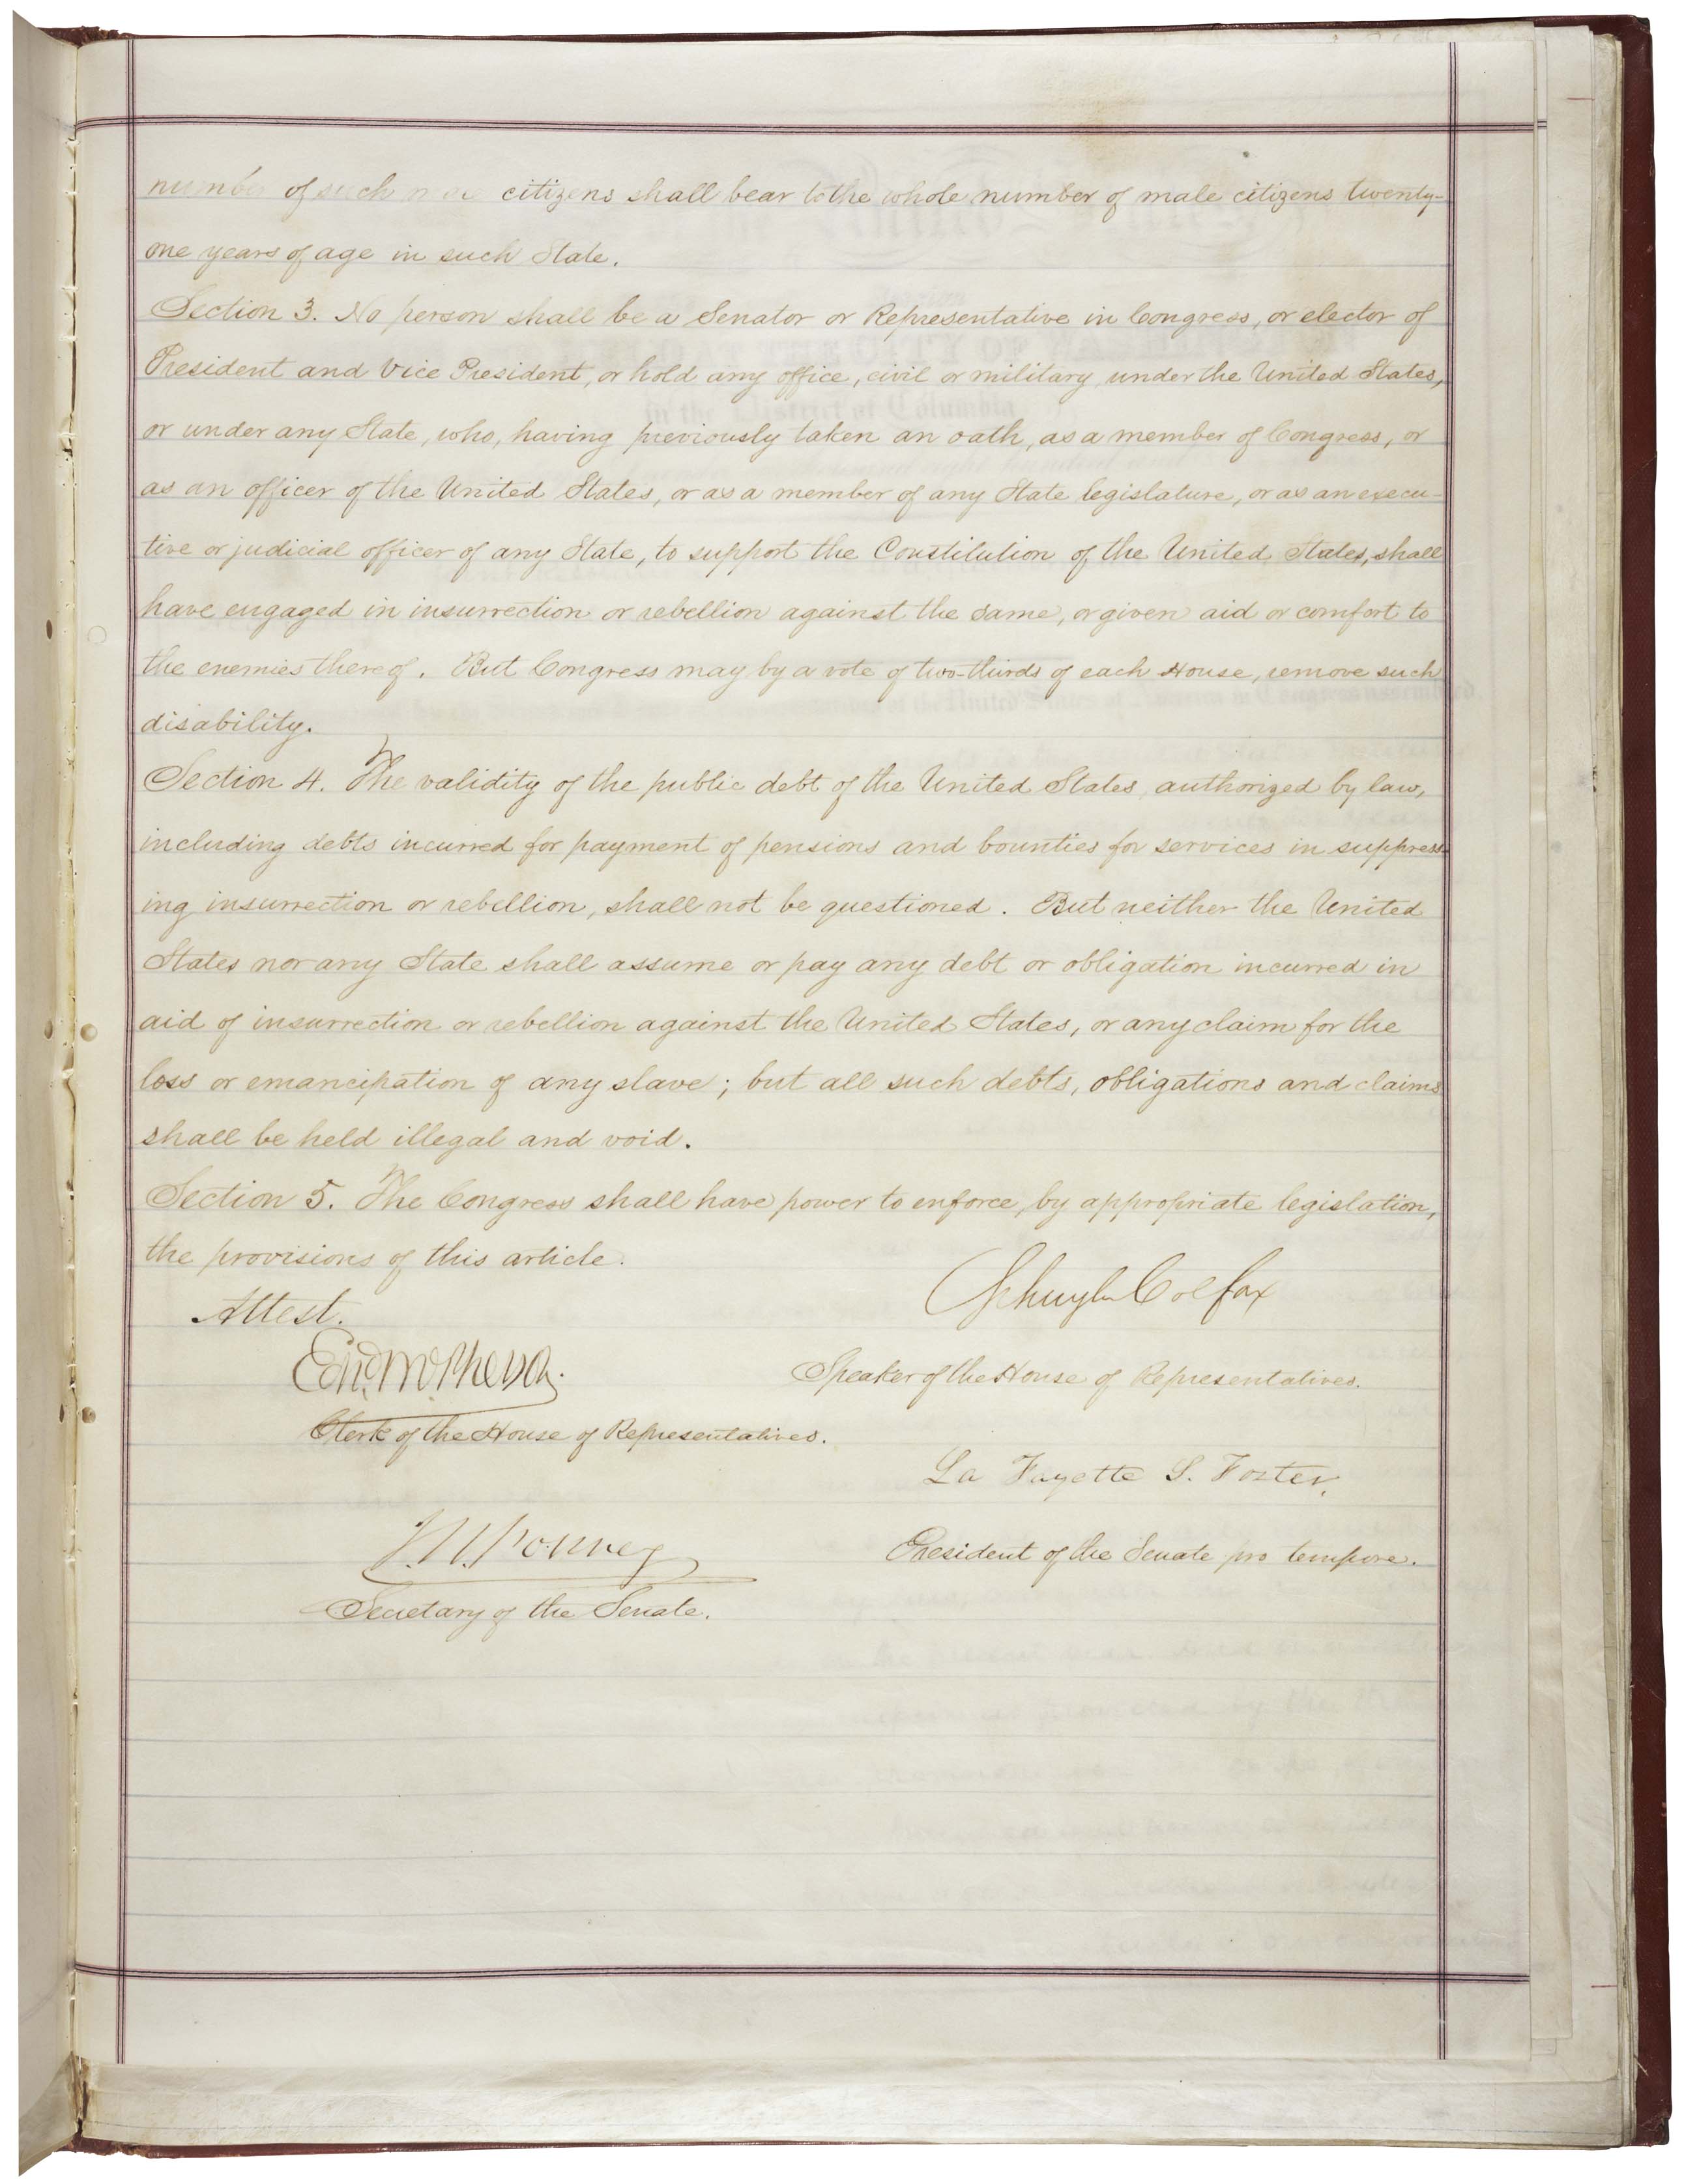 number of such male citizens shall bear to the whole number of male citizens twenty-
one years of age in such State.
Section 3. No person shall be a Senator or Representative in Congress, or elector of
President and Vice President, or hold any office, civil or military, under the United States,
or under any State, who, having previously taken an oath, as a member of Congress, or
as an officer of the United States, or as a member of any State legislature, or as an execu-
tive or judicial officer of any State, to support the Constitution of the United States, shall
have engaged in insurrection or rebellion against the same, or given aid or comfort to
the enemies thereof. But Congress may by a vote of two-thirds of each House, remove such
disability.
Section 4. The validity of the public debt of the United States, authorized by law,
including debts incurred for payment of pensions and bounties for services in suppress-
ing insurrection or rebellion, shall not be questioned. But neither the United
States nor any State shall assume or pay any debt or obligation incurred in
aid of insurrection or rebellion against the United States, or any claim for the
loss or emancipation of any slave; but all such debts, obligations and claims
shall be held illegal and void.
Section 5. The Congress shall have power to enforce, by appropriate legislation,
the provisions of this article.
Schuyler Colfax
Attest.
Edwd McPherson.
Speaker of the House of Representatives.
Clerk of the House of Representatives.
La Fayette S. Foster,
J. W. Forney
President of the Senate pro tempore.
Secretary of the Senate.